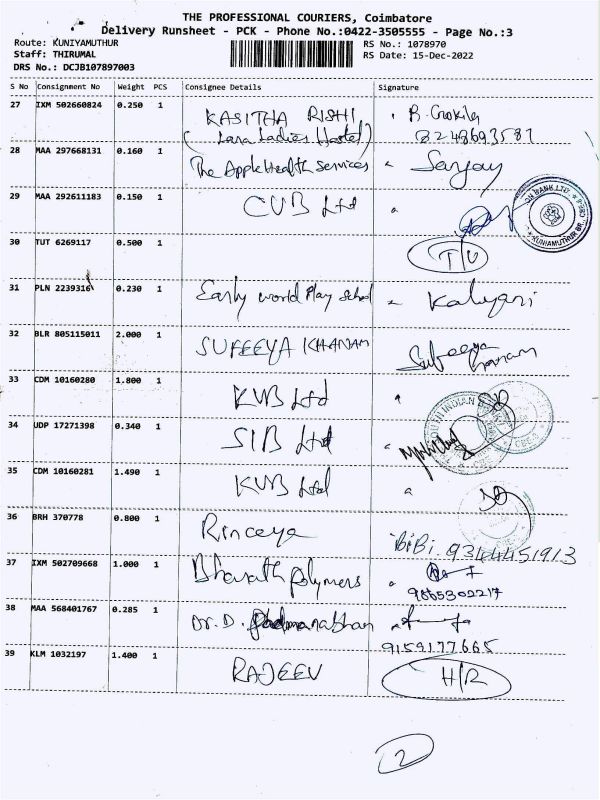 THE PROFESSIONAL COURIERS, Coimbatore
Delivery Runsheet - PCK - Phone No.:0422-3505555 - Page No.:3
Route: KUNIYAMUTHUR RS No.: 1078970
Staff: THIRUMAL RS Date: 15-Dec-2022
DRS No.: DCJB107897003
S No Consignment No Weight PCS Consignee Details Signature
27 IXM 502660824 0.250 1 KASITHA RISHI
(Lara Ladies Hostel) 8248693581
28 MAA 297668131 0.160 1 The Apple Health Services Sanjay
29 MAA 292611183 0.150 1 CUB Ltd
30 TUT 6269117 0.500 1 T/U
31 PLN 2239316 0.230 1 Early world Play School Kalyani
32 BLR 805115011 2.000 1 SUFEEYA KHANAM Sufeeya
hanam
33 CDM 10160280 1.800 1 KVB Ltd
34 UDP 17271398 0.340 1 SIB Ltd
35 CDM 10160281 1.490 1 KVB Ltd
36 BRH 370778 0.800 1 BiBi. 9344451913
37 IXM 502709668 1.000 1 Bharath polymers
9865302217
38 MAA 568401767 0.285 1 Dr. D. Padmanabhan
9159177665
39 KLM 1032197 1.400 1 RAJEEV H/R
2